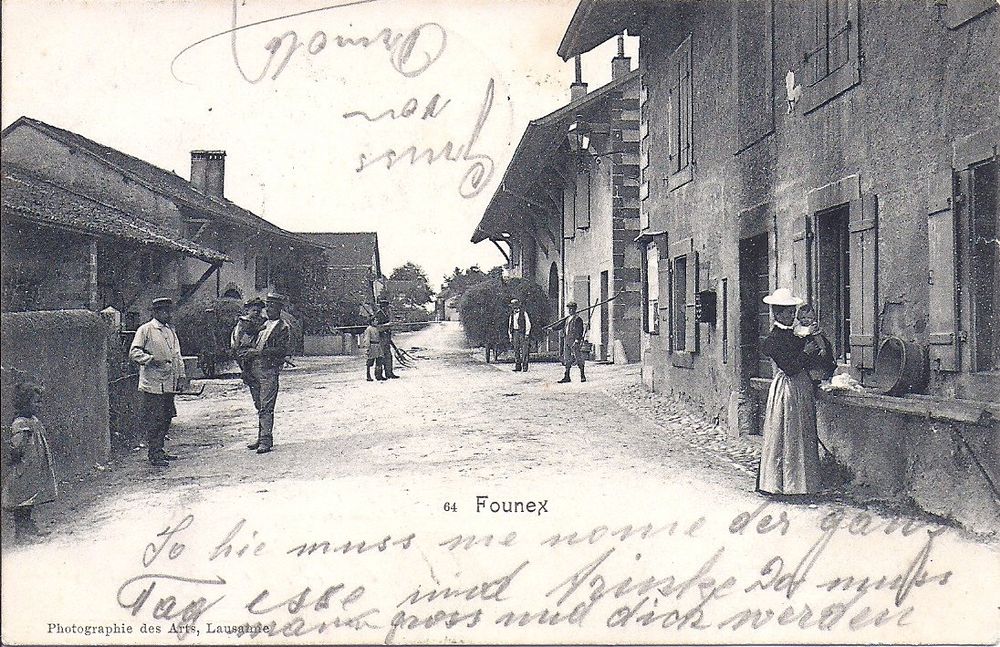 Gruss
von
64 Founex
So hie muss me nome der ganz
Tag esse und trinke Da muss
gross und dick werden
Photographie des Arts, Lausanne